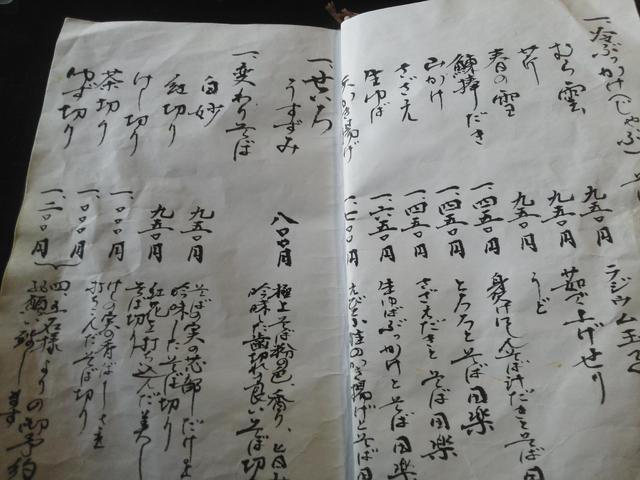 一、冷ぶっかけ（じゃぶ）
むら雲 九五〇円
芹 九五〇円 茹で上げせり
春の雪 九五〇円 うど
鰊棒だき 一、四五〇円
山かけ 一、四五〇円 とろろとそば用楽
さざえ 一、四五〇円 さざえだきとそば用楽
生ゆば 一、六五〇円 生ゆばぶっかけとそば用楽
かき揚げ
一、せいろ
うすずみ 八〇〇円 極上そば粉の色、香り、と
吟味した歯切れ良いそば切り
一、変わりそば
白妙 九五〇円 そばの実の芯部しだけを
吟味したそば切り
紅切り 九五〇円 紅花を打ち込んだ美しい
そば切り
けし切り 一、〇〇〇円 けしの実の香ばしさを
打ちこんだそば切り
茶切り 一、〇〇〇円 四、五名様よりの御予約
ゆず切り 一、二〇〇円 お願い致します